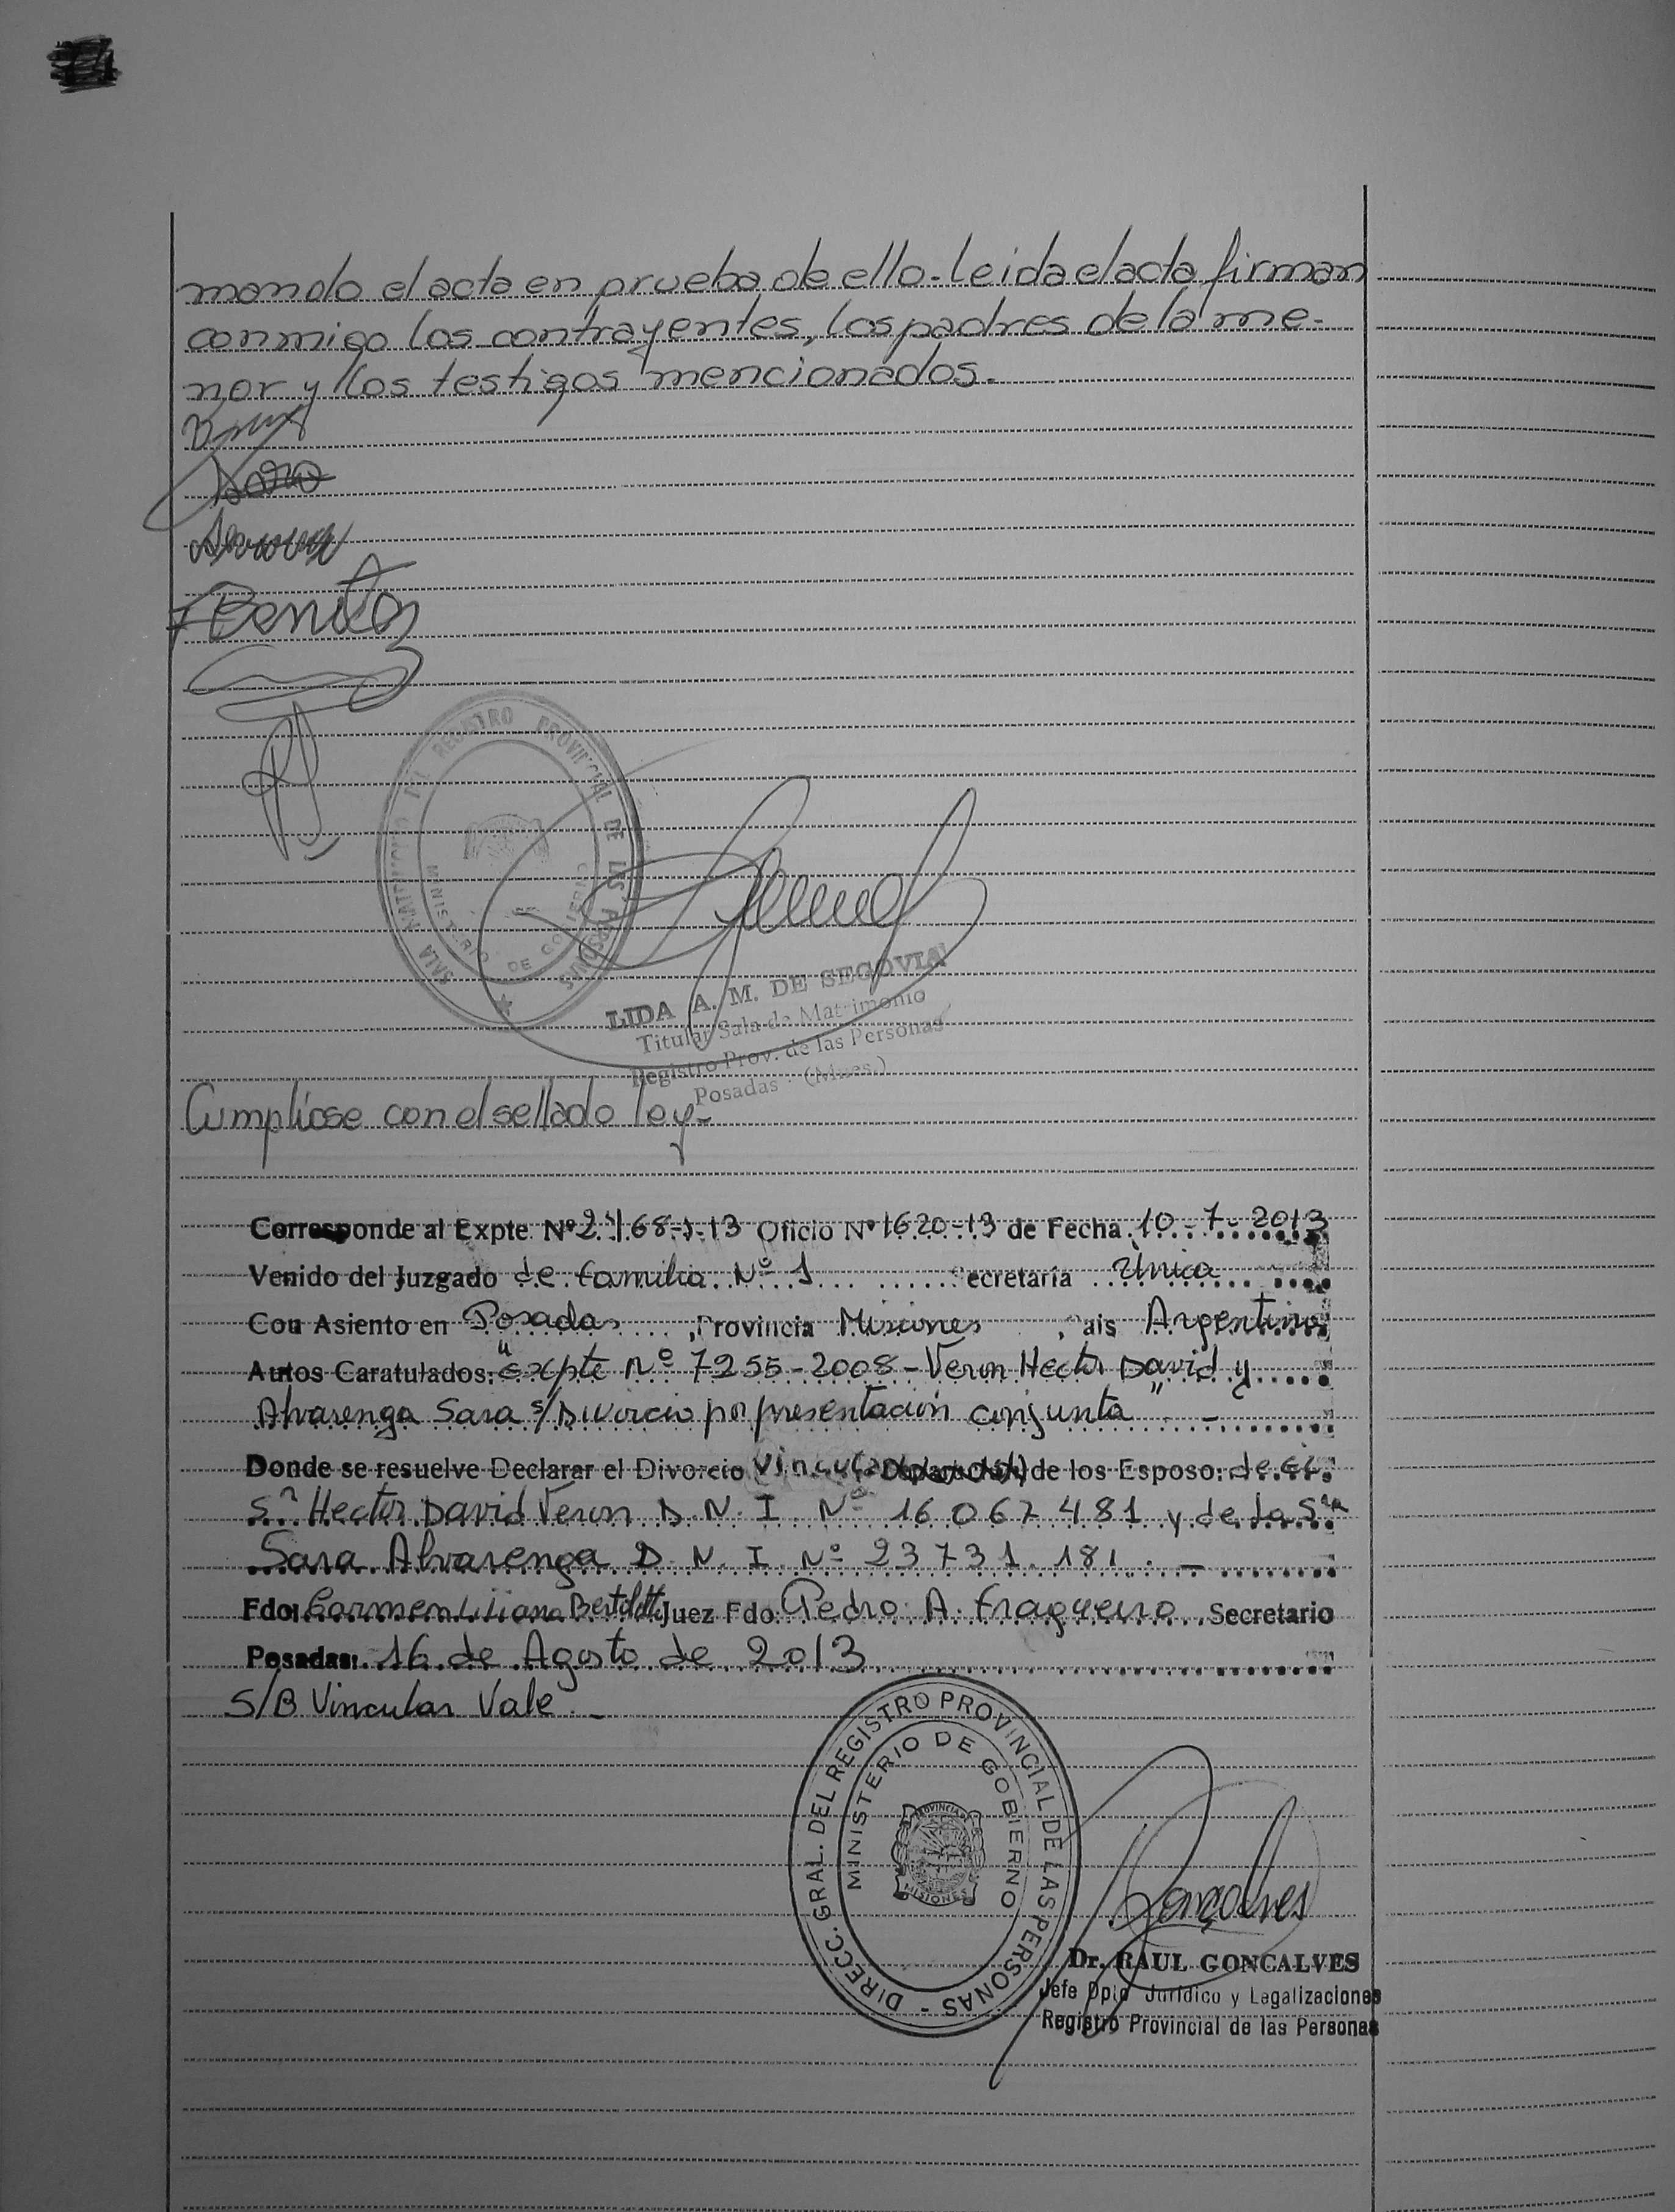 mando el acta en prueba de ello-leida el acta firman
conmigo los contrayentes, los padres de la me-
nor y los testigos mencionados.
Benitez
SALA MATRIMONIO DEL REGISTRO PROVINCIAL DE LAS PERSONAS
MINISTERIO DE GOBIERNO
LIDA A. M. DE SEGOVIA
Titular Sala de Matrimonio
Registro Prov. de las Personas
Posadas - (Mnes.)
Cumplióse con el sellado ley-
Corresponde al Expte. Nº 2468-J-13 Oficio Nº 1620-13 de Fecha 10-7-2013
Venido del Juzgado de familia Nº 1 ecretaría Única
Con Asiento en Posadas, Provincia Misiones, ais Argentina
Autos Caratulados: "Expte Nº 7255-2008-Veron Hector David y
Alvarenga Sara s/Divorcio por presentación conjunta" -
Donde se resuelve Declarar el Divorcio Vincular de los Esposo: de el
Sr Hector David Veron D.N.I. Nº 16 067 481 y de la Sra
Sara Alvarenga D.N.I. Nº 23 731.181. -
Fdo: Carmen Liliana Bertolotti Juez Fdo: Pedro A. Fragueiro Secretario
Posadas: 16 de Agosto de 2013
S/B Vincular Vale -
DIRECC. GRAL. DEL REGISTRO PROVINCIAL DE LAS PERSONAS -
MINISTERIO DE GOBIERNO
PROVINCIA DE
MISIONES
Gonçalves
Dr. RAUL GONCALVES
Jefe Dpto Jurídico y Legalizaciones
Registro Provincial de las Personas